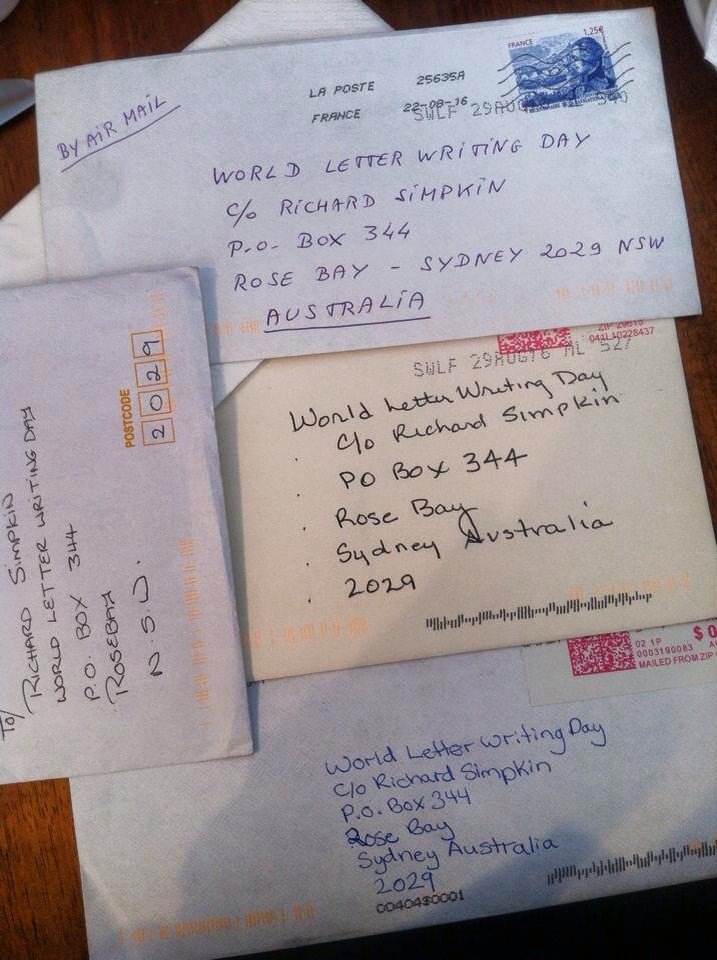 BY AIR MAIL
LA POSTE 25635A
FRANCE 22-08-16
FRANCE 1,25€
SWLF 29AUG
WORLD LETTER WRITING DAY
C/o RICHARD SIMPKIN
P.O. BOX 344
ROSE BAY - SYDNEY 2029 NSW
AUSTRALIA
POSTCODE
2029
TO/
RICHARD SIMPKIN
WORLD LETTER WRITING DAY
P.O. BOX 344
ROSEBAY
N.S.W.
041L10228437
SWLF 29AUG16 ML 527
World Letter Writing Day
C/o Richard Simpkin
PO Box 344
Rose Bay
Sydney Australia
2029
02 1P $0
0003190083
MAILED FROM ZIP
World Letter Writing Day
C/o Richard Simpkin
P.O. Box 344
Rose Bay
Sydney Australia
2029
0040480001